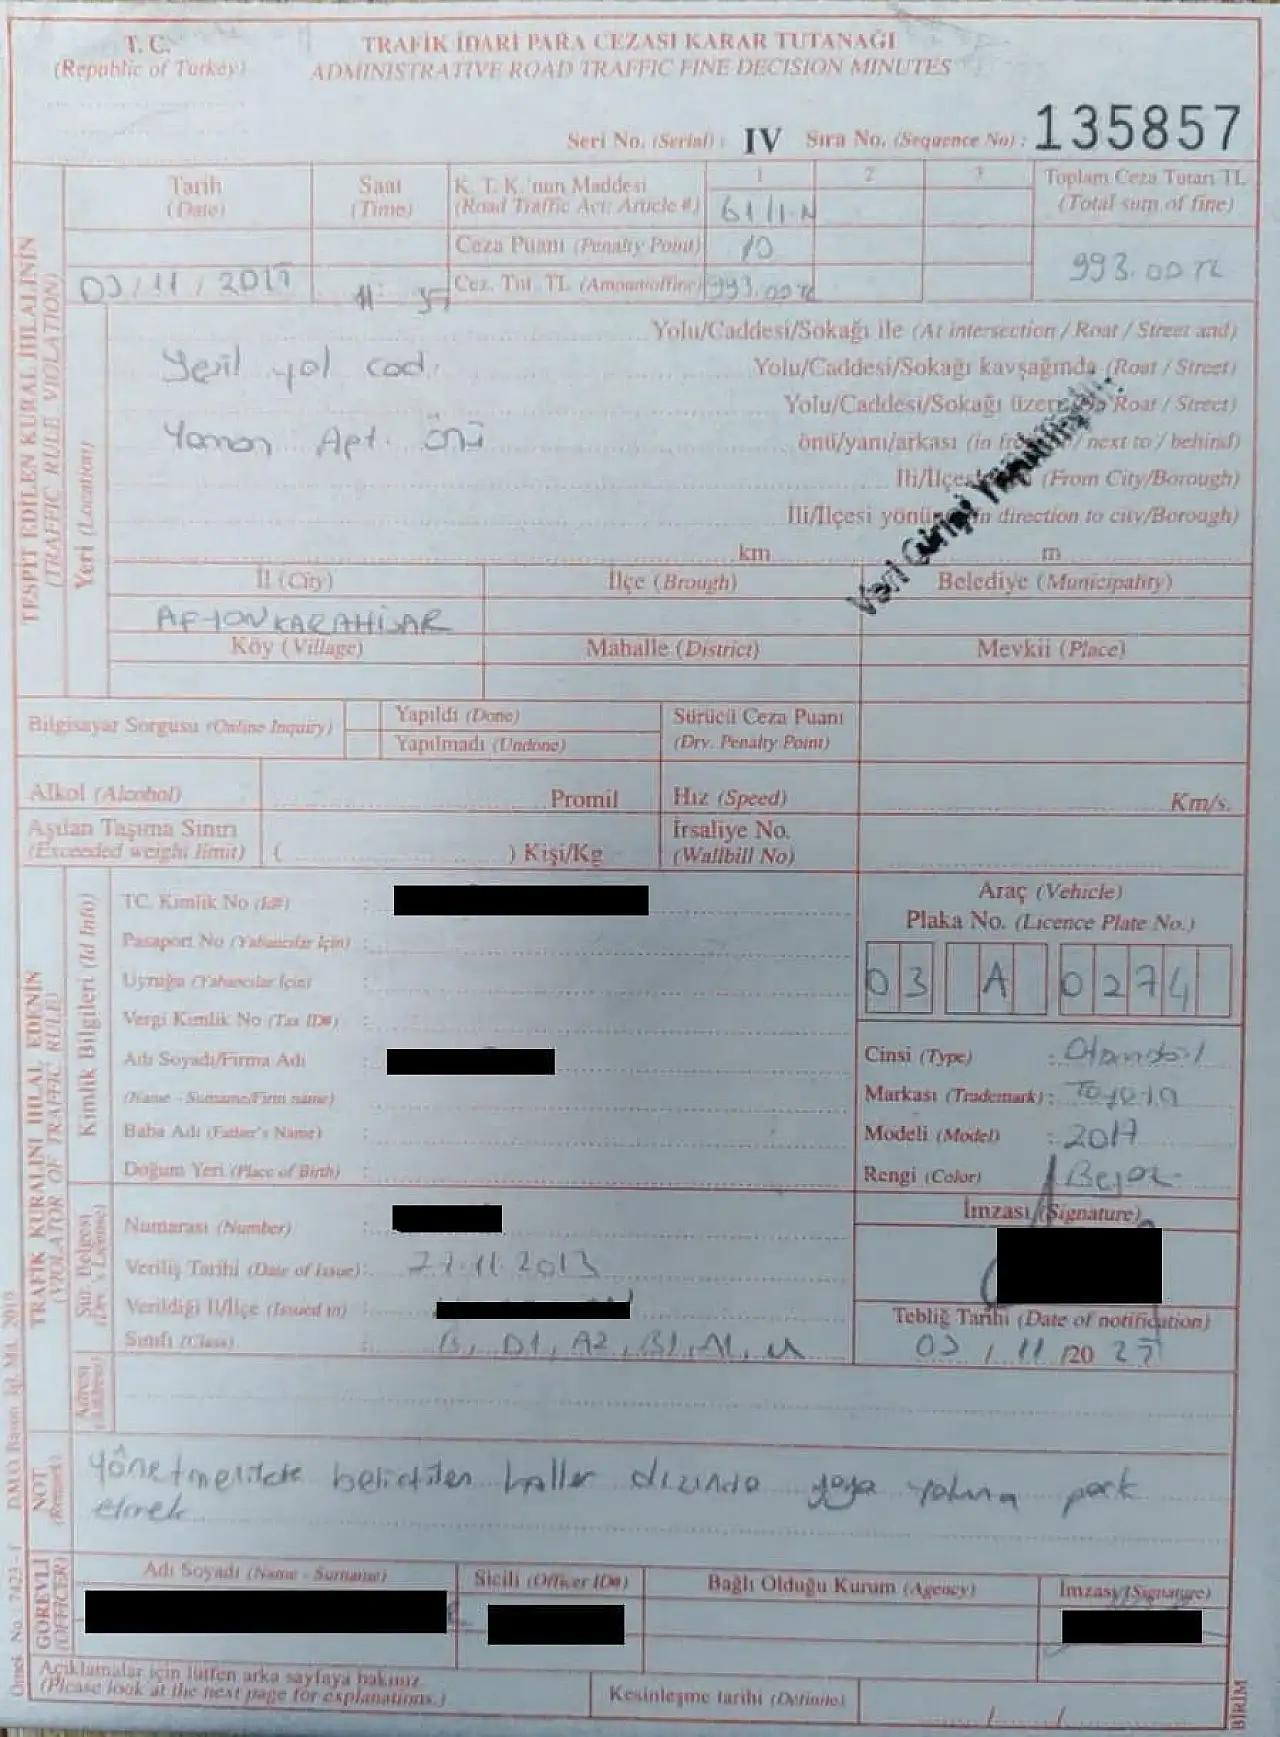 T. C.
(Republic of Turkey)
TRAFİK İDARİ PARA CEZASI KARAR TUTANAĞI
ADMINISTRATIVE ROAD TRAFFIC FINE DECISION MINUTES
Seri No. (Serial) : IV Sıra No. (Sequence No) : 135857
TESPİT EDİLEN KURAL İHLALİNİN
(TRAFFIC RULE VIOLATION)
Tarih
(Date)
03/11/2017
Saat
(Time)
K. T. K.'nun Maddesi
(Road Traffic Act: Article #)
1 2 3
61/1-N
Ceza Puanı (Penalty Point) 10
Cez. Tut. TL (Amountoffine) 993.00 TL
Toplam Ceza Tutarı TL
(Total sum of fine)
993.00 TL
Yeri (Location)
Yolu/Caddesi/Sokağı ile (At intersection / Roat / Street and)
Yeşil yol cad. Yolu/Caddesi/Sokağı kavşağında (Roat / Street)
Yolu/Caddesi/Sokağı (Roat / Street)
Yaman Apt. önü önü/yanı/arkası (in / next to / behind)
(From City/Borough)
İli/İlçesi in direction to city/Borough)
km m
Veri Girişi Yapılmıştır.
İl (City) İlçe (Brough) Belediye (Municipality)
AFYONKARAHİSAR
Köy (Village) Mahalle (District) Mevkii (Place)
Bilgisayar Sorgusu (Online Inquiry)
Yapıldı (Done)
Yapılmadı (Undone)
Sürücü Ceza Puanı
(Drv. Penalty Point)
Alkol (Alcohol) Promil Hız (Speed) Km/s.
Aşılan Taşıma Sınırı
(Exceeded weight limit) ( ) Kişi/Kg
İrsaliye No.
(Wallbill No)
TRAFİK KURALINI İHLAL EDENİN
(VIOLATOR OF TRAFFIC RULE)
Kimlik Bilgileri (Id Info)
TC. Kimlik No (Id#) :
Pasaport No (Yabancılar İçin) :
Uyruğu (Yabancılar İçin) :
Vergi Kimlik No (Tax ID#) :
Adı Soyadı/Firma Adı :
(Name - Surname/Firm name) :
Baba Adı (Father's Name) :
Doğum Yeri (Place of Birth) :
Araç (Vehicle)
Plaka No. (Licence Plate No.)
03 A 0274
Cinsi (Type) : Otomobil
Markası (Trademark) : Toyota
Modeli (Model) : 2017
Rengi (Color) Bej
İmzası (Signature)
Sür. Belgesi
(Drv.'s License)
Numarası (Number) :
Veriliş Tarihi (Date of Issue) : 27.11.2013
Verildiği İl/İlçe (Issued in) :
Sınıfı (Class) : B, D1, A2, B1, A1, M
Tebliğ Tarihi (Date of notification)
03 / 11 /20
Adresi
(Address)
NOT
(Remark)
Yönetmelikte belirtilen haller dızında yaya yoluna park
etmek
GÖREVLİ
(OFFICER)
Adı Soyadı (Name - Surname) Sicili (Officer ID#) Bağlı Olduğu Kurum (Agency) İmzası (Signature)
Açıklamalar için lütfen arka sayfaya bakınız.
(Please look at the next page for explanations.)
Kesinleşme tarihi (Definite) / /
BİRİM